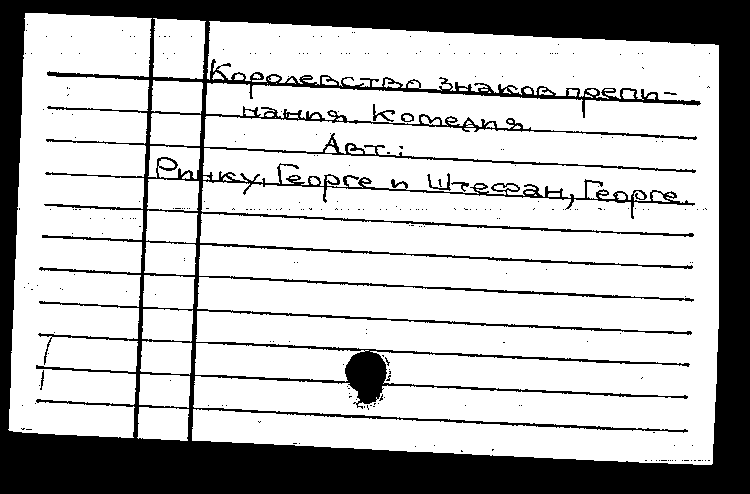 Королевство знаков препи-
нания. Комедия.
Авт.:
Ринку, Георге и Штефан, Георге.